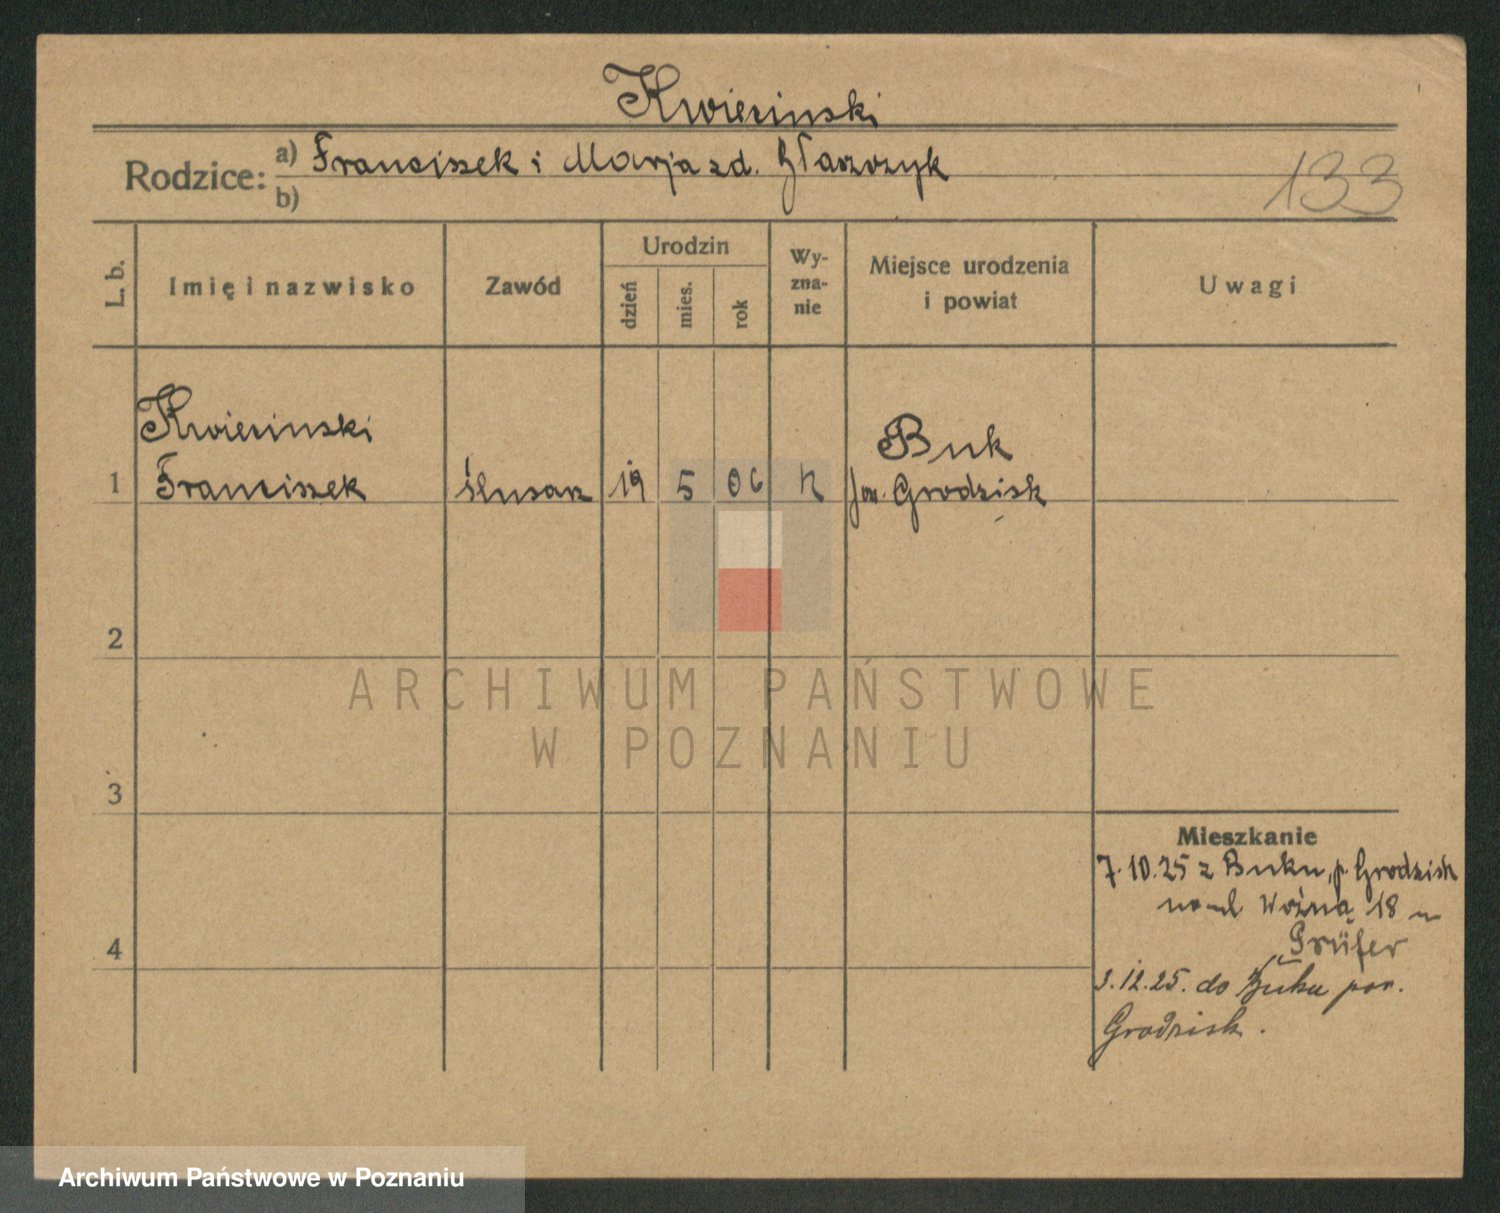 Kwiecinski
Rodzice: a) Franciszek i Marja zd. Błaszczyk
b)
133
L. b.
Imię i nazwisko
Zawód
Urodzin
dzień
mies.
rok
Wy-
zna-
nie
Miejsce urodzenia
i powiat
Uwagi
Kwiecinski
Buk
1 Franciszek ślusarz 19 5 06 K Grodzisk
2
3
4
Mieszkanie
7.10.25 z Buku, p. Grodzisk
Woźna 18
Prüfer
3.12.25. do Buku pow.
Grodzisk.
ARCHIWUM PAŃSTWOWE
W POZNANIU
Archiwum Państwowe w Poznaniu